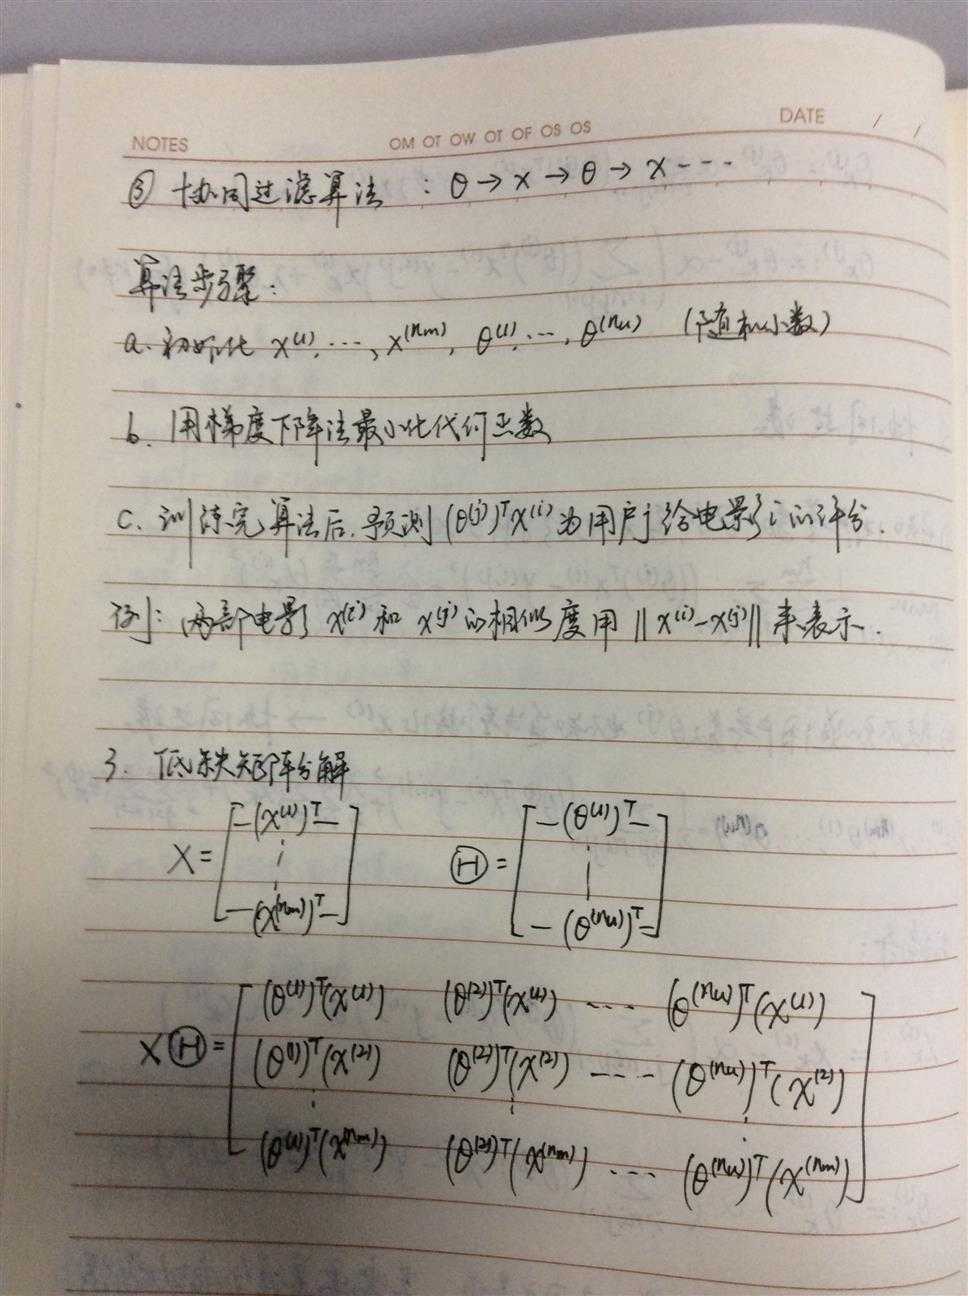 NOTES OM OT OW OT OF OS OS DATE / /
③ 协同过滤算法 : θ → x → θ → x ----
算法步骤:
a. 初始化 x⁽¹⁾, ..., x⁽ⁿᵐ⁾, θ⁽¹⁾, ..., θ⁽ⁿᵘ⁾ (随机小数)
b. 用梯度下降法最小化代价函数
c. 训练完算法后, 预测 (θ⁽ʲ⁾)ᵀx⁽ⁱ⁾ 为用户j给电影i的评分.
例: 两部电影 x⁽ⁱ⁾ 和 x⁽ʲ⁾ 的相似度用 ||x⁽ⁱ⁾-x⁽ʲ⁾|| 来表示.
3. 低秩矩阵分解
X = [ -(x⁽¹⁾)ᵀ- ⋮ -(x⁽ⁿᵐ⁾)ᵀ- ] Θ = [ -(θ⁽¹⁾)ᵀ- ⋮ -(θ⁽ⁿᵘ⁾)ᵀ- ]
(θ⁽¹⁾)ᵀ(x⁽¹⁾) (θ⁽²⁾)ᵀ(x⁽¹⁾) ---- (θ⁽ⁿᵘ⁾)ᵀ(x⁽¹⁾)
XΘ = (θ⁽¹⁾)ᵀ(x⁽²⁾) (θ⁽²⁾)ᵀ(x⁽²⁾) ---- (θ⁽ⁿᵘ⁾)ᵀ(x⁽²⁾)
⋮ ⋮ ⋮
(θ⁽¹⁾)ᵀ(x⁽ⁿᵐ⁾) (θ⁽²⁾)ᵀ(x⁽ⁿᵐ⁾) ---- (θ⁽ⁿᵘ⁾)ᵀ(x⁽ⁿᵐ⁾)